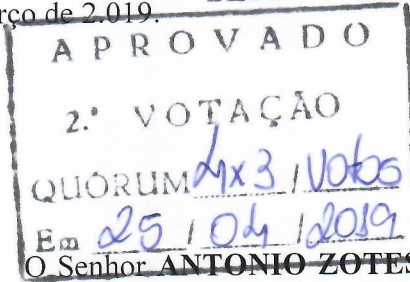 rço de 2.019.
APROVADO
2.ª VOTAÇÃO
QUÓRUM 4x3 / Votos
Em 25 / 04 / 2019
O Senhor ANTONIO ZOTES